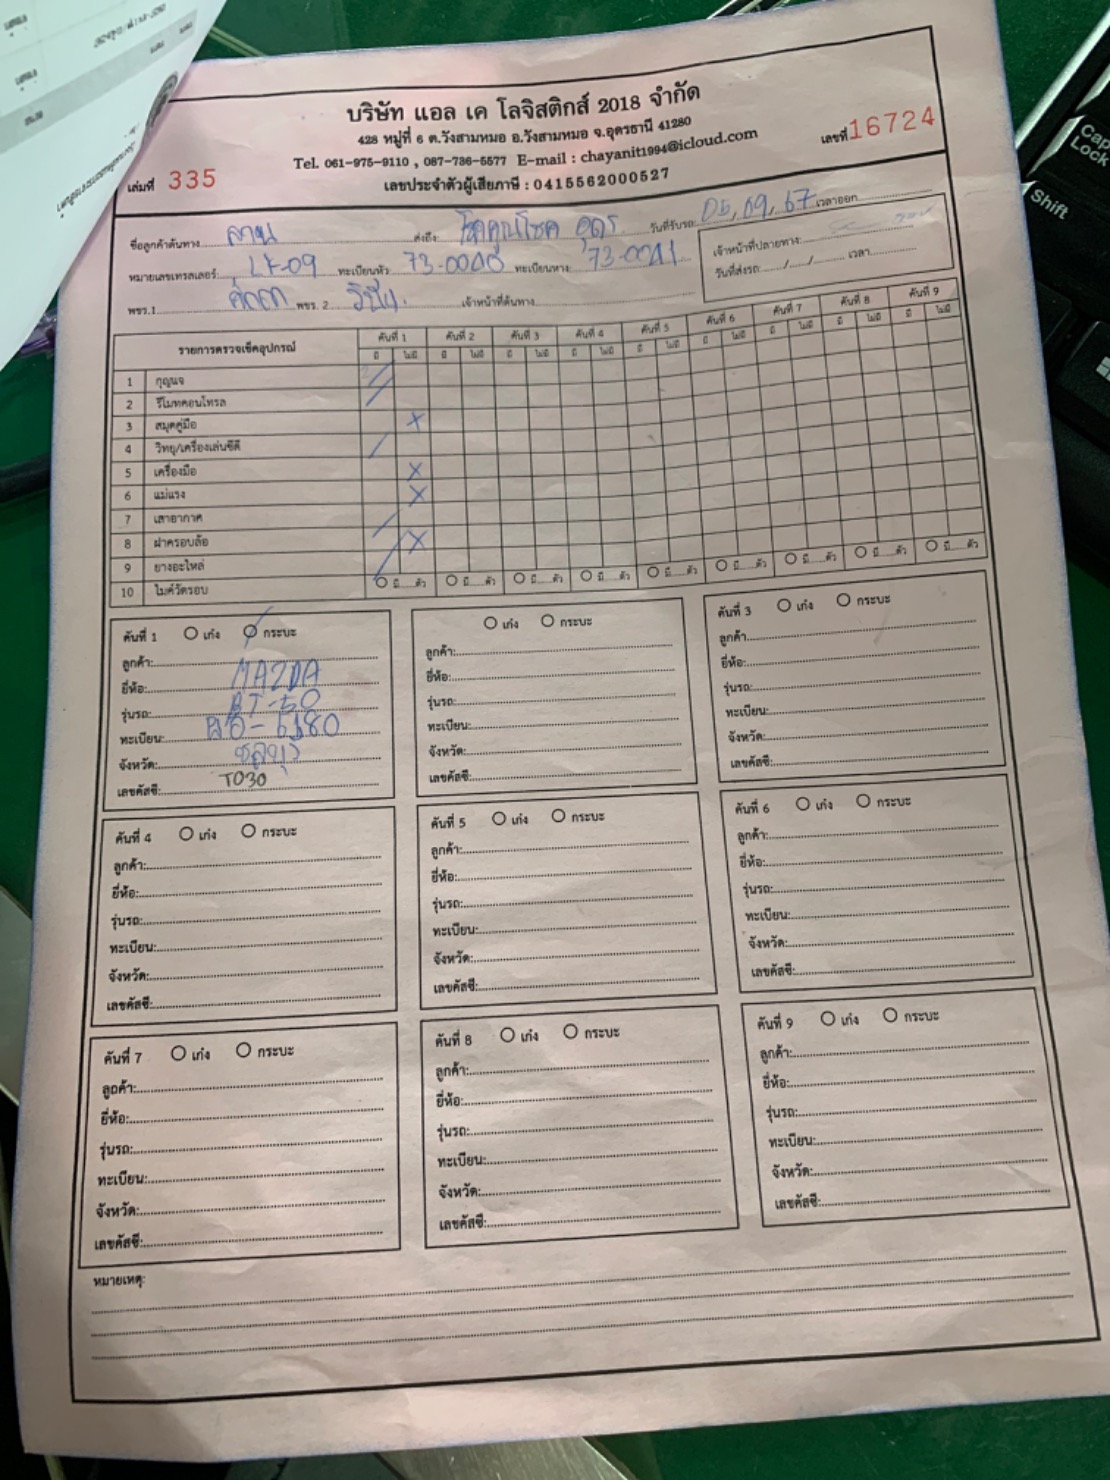 บริษัท แอล เค โลจิสติกส์ 2018 จำกัด
428 หมู่ที่ 6 ต.วังสามหมอ อ.วังสามหมอ จ.อุดรธานี 41280
Tel. 061-975-9110 , 087-736-5577 E-mail : chayanit1994@icloud.com
เลขประจำตัวผู้เสียภาษี : 0415562000527
เล่มที่ 335
เลขที่ 16724
ชื่อลูกค้าต้นทาง ลาน ส่งถึง โชคคูณโชค อุดร วันที่รับรถ 05, 09, 67 เวลาออก
หมายเลขเทรลเลอร์: LK-09 ทะเบียนหัว 73-0040 ทะเบียนหาง 73-0041
พขร.1 พขร. 2 เจ้าหน้าที่ต้นทาง
เจ้าหน้าที่ปลายทาง:
วันที่ส่งรถ: / / เวลา
รายการตรวจเช็คอุปกรณ์ คันที่ 1 คันที่ 2 คันที่ 3 คันที่ 4 คันที่ 5 คันที่ 6 คันที่ 7 คันที่ 8 คันที่ 9
มี ไม่มี มี ไม่มี มี ไม่มี มี ไม่มี มี ไม่มี มี ไม่มี มี ไม่มี มี ไม่มี มี ไม่มี
1 กุญแจ /
2 รีโมทคอนโทรล /
3 สมุดคู่มือ X
4 วิทยุ/เครื่องเล่นซีดี /
5 เครื่องมือ X
6 แม่แรง X
7 เสาอากาศ /
8 ฝาครอบล้อ X
9 ยางอะไหล่ /
10 ไมค์วัดรอบ มี ตัว มี ตัว มี ตัว มี ตัว มี ตัว มี ตัว มี ตัว มี ตัว มี ตัว
คันที่ 1 เก๋ง กระบะ
ลูกค้า:
ยี่ห้อ: MAZDA
รุ่นรถ: BT-50
ทะเบียน: 6180
จังหวัด: ชลบุรี
เลขคัสซี: T030
เก๋ง กระบะ
ลูกค้า:
ยี่ห้อ:
รุ่นรถ:
ทะเบียน:
จังหวัด:
เลขคัสซี:
คันที่ 3 เก๋ง กระบะ
ลูกค้า:
ยี่ห้อ:
รุ่นรถ:
ทะเบียน:
จังหวัด:
เลขคัสซี:
คันที่ 4 เก๋ง กระบะ
ลูกค้า:
ยี่ห้อ:
รุ่นรถ:
ทะเบียน:
จังหวัด:
เลขคัสซี:
คันที่ 5 เก๋ง กระบะ
ลูกค้า:
ยี่ห้อ:
รุ่นรถ:
ทะเบียน:
จังหวัด:
เลขคัสซี:
คันที่ 6 เก๋ง กระบะ
ลูกค้า:
ยี่ห้อ:
รุ่นรถ:
ทะเบียน:
จังหวัด:
เลขคัสซี:
คันที่ 7 เก๋ง กระบะ
ลูกค้า:
ยี่ห้อ:
รุ่นรถ:
ทะเบียน:
จังหวัด:
เลขคัสซี:
คันที่ 8 เก๋ง กระบะ
ลูกค้า:
ยี่ห้อ:
รุ่นรถ:
ทะเบียน:
จังหวัด:
เลขคัสซี:
คันที่ 9 เก๋ง กระบะ
ลูกค้า:
ยี่ห้อ:
รุ่นรถ:
ทะเบียน:
จังหวัด:
เลขคัสซี:
หมายเหตุ:
Caps Lock
Shift